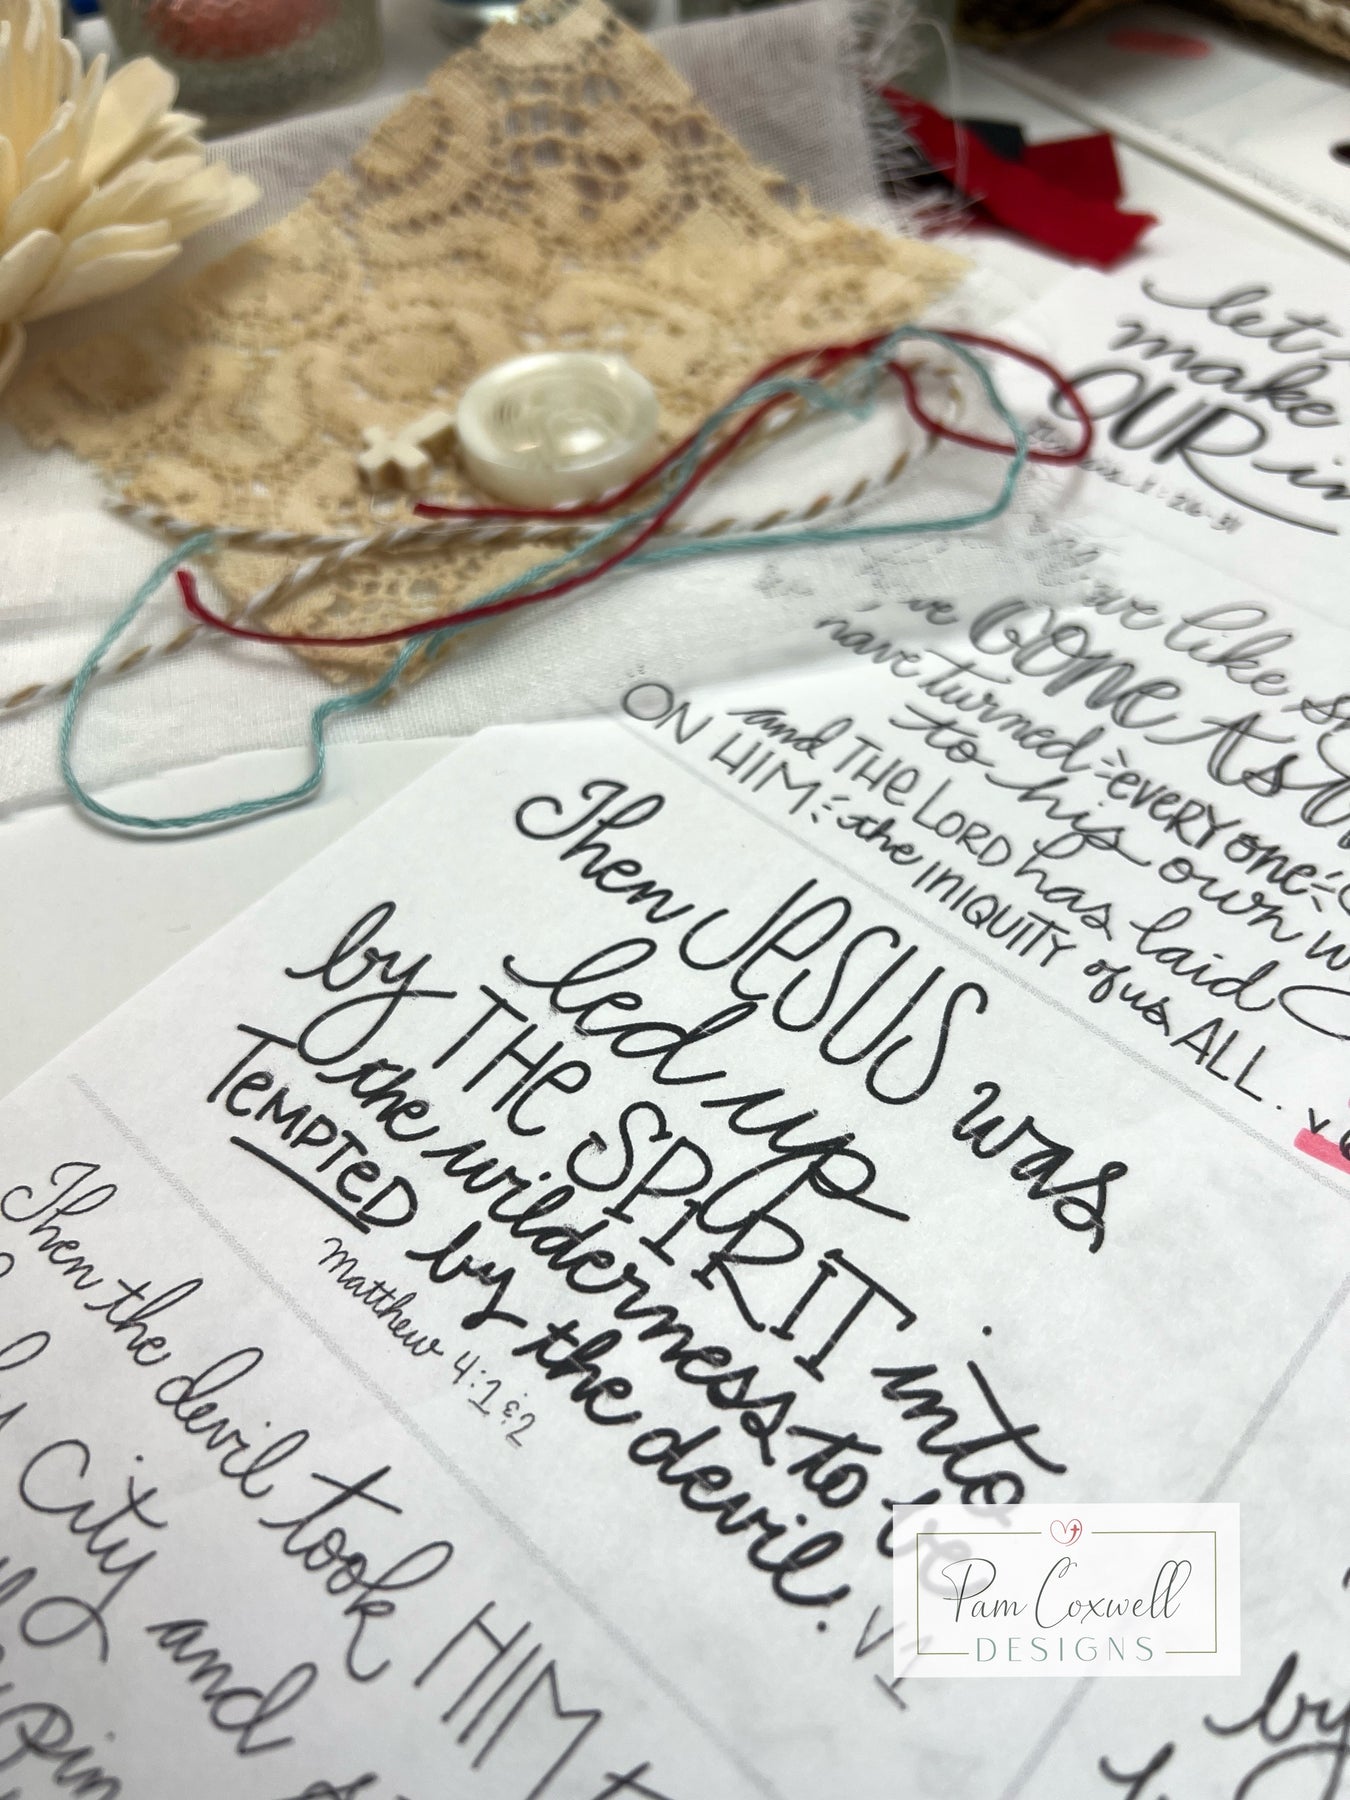 let's
make
OUR in
1:26-31
we like
we GONE AST
have turned
to his own w
everyone
and THE LORD has laid
ON HIM the INIQUITY of us ALL.
Then JESUS was
led up
by THE SPIRIT into
the wilderness to be
TEMPTED by the devil.
Matthew 4:1 & 2
V1
Then the devil took HIM
City and
Pin
by
Pam Coxwell
DESIGNS